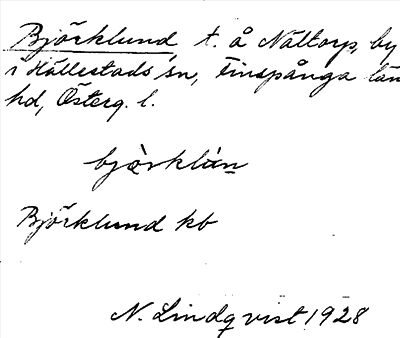 Björklund t. å Nältorp, by
i Hällestads sn, Finspånga län
hd, Österg. l.
bjö̀rklún
Björklund kb
N. Lindqvist 1928